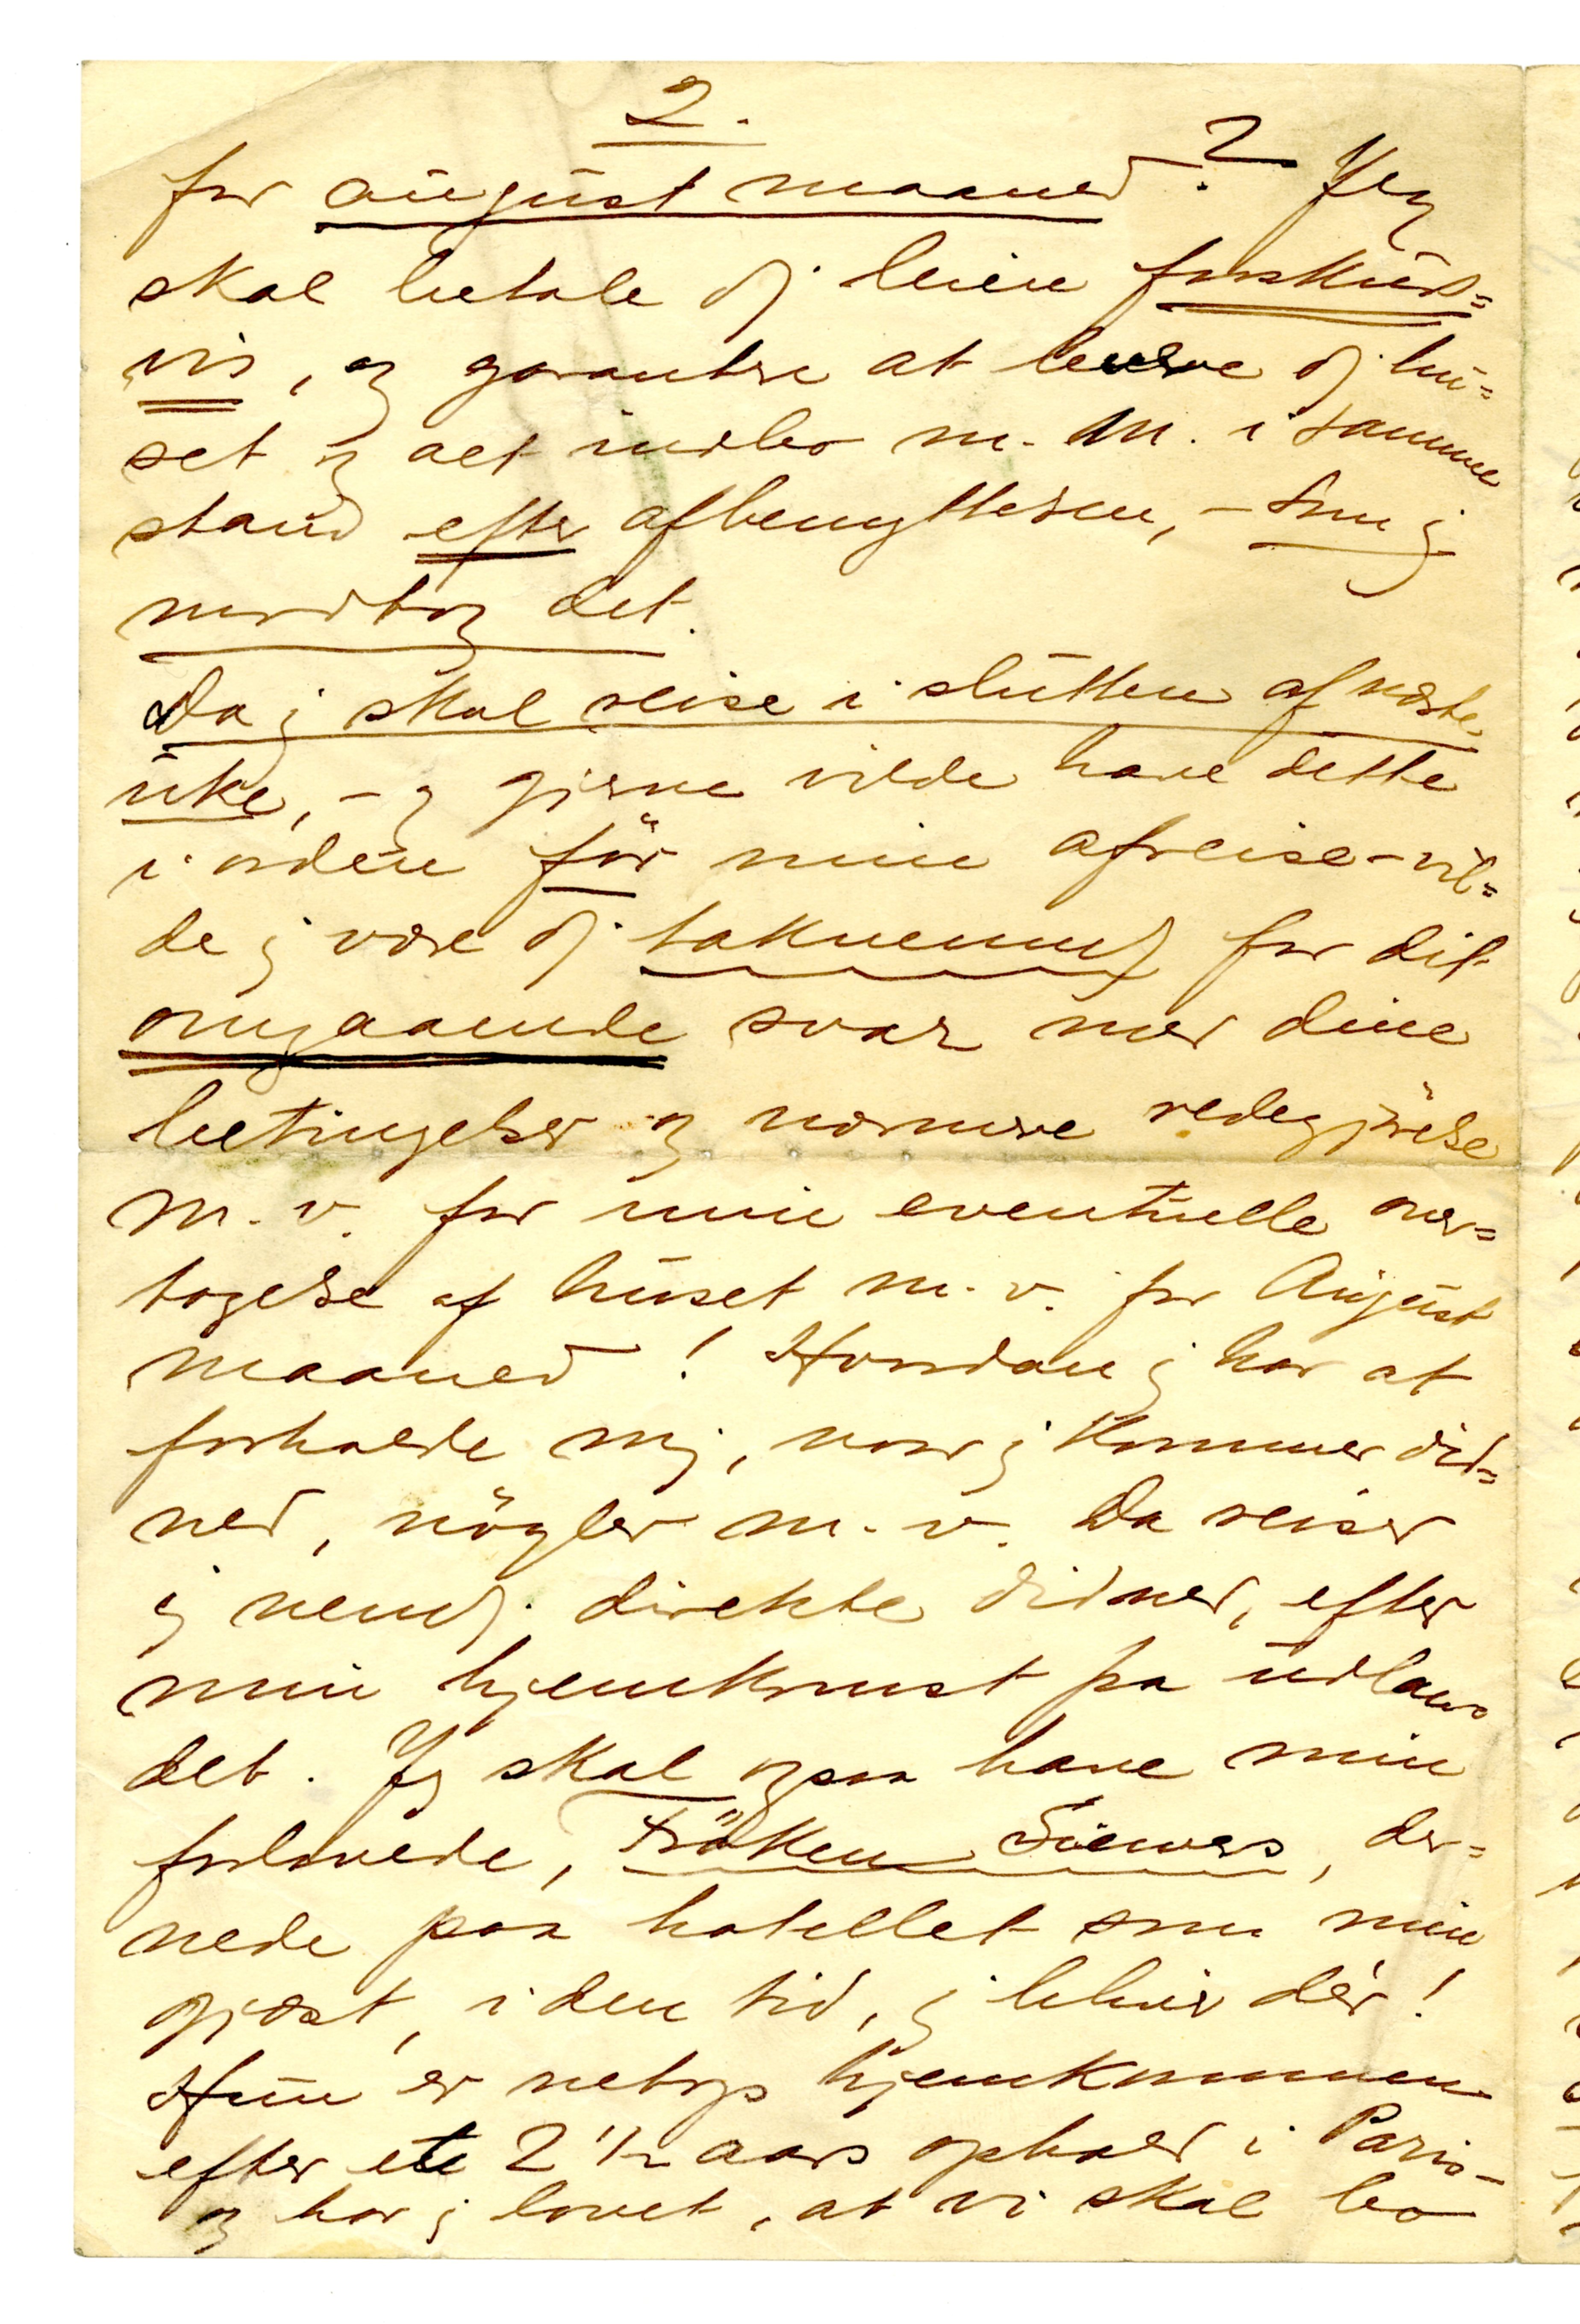 2.
for august maaned? Jeg
skal betale dj leien forskuds=
vis, og garantere at levere dj hu=
set og alt indbo m. m. i samme
stand efter afbenyttelsen, - som j
modtog det.
Da j skal reise i slutten af næste
uke, - og gjerne vilde have dette
i orden før min afreise - vil=
de j være dj taknemmelj for dit
omgaaende svar med dine
betingelser og nærmere redegjørelse
m. v. for min eventuelle over=
tagelse af huset m. v. for August
maaned! Hvordan j har at
forholde mj, naar j kommer did=
ned, nögler m. v. Da reiser
j nemlj. direkte didned, efter
min hjemkomst fra udlan
det. Jg skal ogsaa have min
forlovede, Fröken Siewers, der=
nede paa hotellet som min
gjæst, i den tid, j blir dér!
Hun er netop hjemkommen
efter ete 2 1/2 aars ophold i Paris -
og har j lovet, at vi skal bo